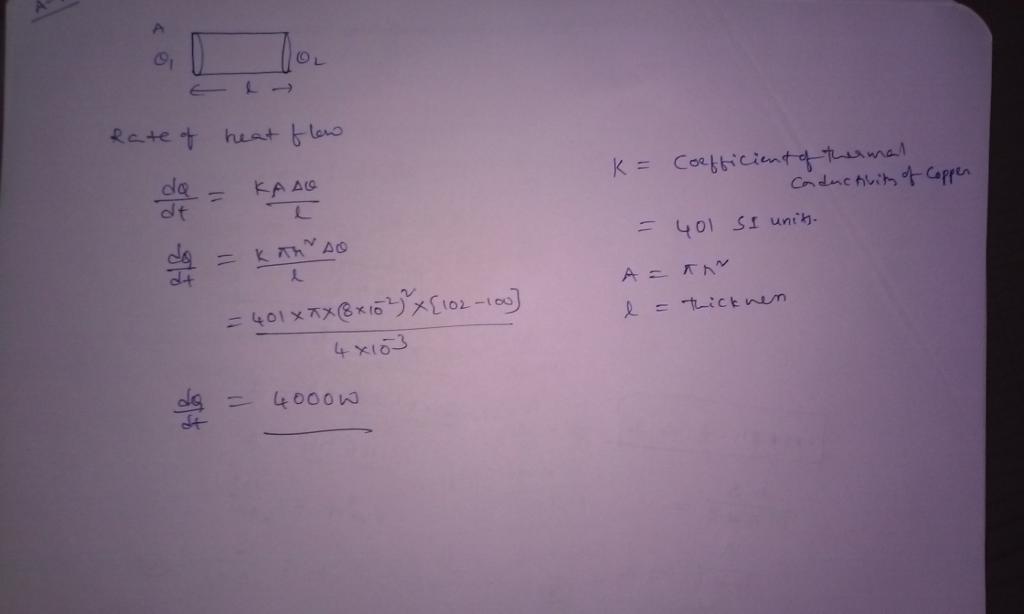 A
θ₁ θ₂
← l →
Rate of heat flow
dQ/dt = KAΔθ/l
dQ/dt = Kπr²Δθ/l
= 401×π×(8×10⁻²)²×[102-100]/4×10⁻³
dQ/dt = 4000W
K = Coefficient of thermal
conductivity of Copper
= 401 SI units.
A = πr²
l = thickness